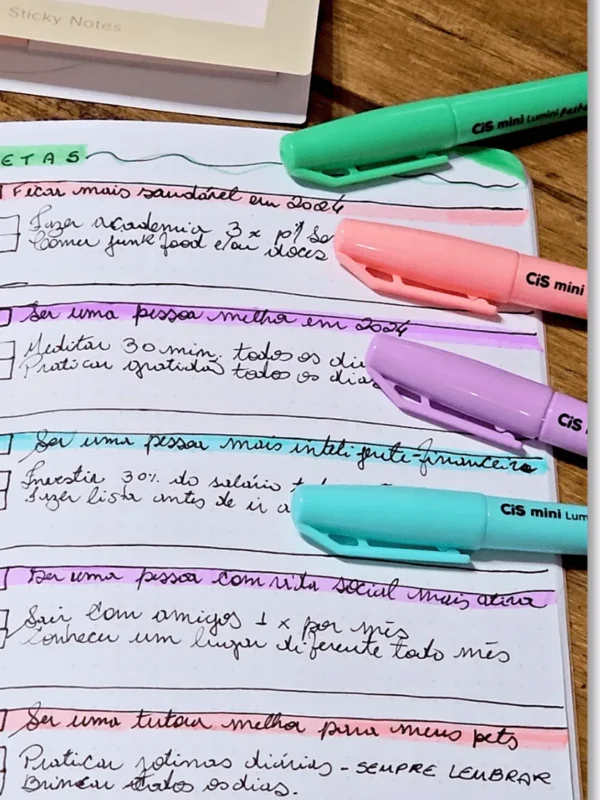 Sticky Notes
ETAS
Ficar mais saudável em 2024
Fazer academia 3x p/ Se
Comer junk food e/ou doces
Ser uma pessoa melhor em 2024
Meditar 30 min. todos os di
Praticar gratidão todos os dias
Ser uma pessoa mais inteligente-financeira
Investir 30% do salário
Fazer lista antes de ir a
Ser uma pessoa com vida social mais ativa
Sair com amigos 1x por mês
Conhecer um lugar diferente todo mês
Ser uma tutora melhor para meus pets
Praticar rotinas diárias - SEMPRE LEMBRAR
Brincar todos os dias.
CiS mini Lumini Paste
CiS mini
CiS
CiS mini Lum